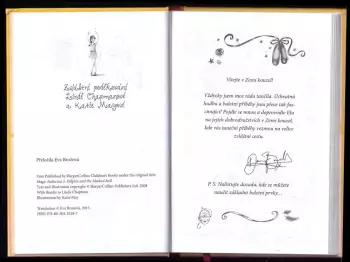 Zvláštní poděkování
Lindě Chapmanové
a Katie Mayové
Přeložila Eva Brožová
First Published by HarperCollins Children's Books under the original title:
Magic Ballerina 1: Delphie and the Magic Ballet Shoes
Text and illustration copyright © HarperCollins Publishers Ltd. 2008
With thanks to Linda Chapman
Illustrations by Katie May
Translation © Eva Brožová, 2011
Vítejte v Zemi kouzel!
Vždycky jsem moc ráda tančila. Úchvatná
hudba a baletní příběhy jsou přece tak fas-
cinující! Pojďte se mnou a doprovoďte Elu
na jejích dobrodružstvích v Zemi kouzel,
kde vás taneční příběhy vezmou na velice
zvláštní cestu.
P. S. Nalistujte dozadu, kde se můžete
naučit základní baletní prvky…